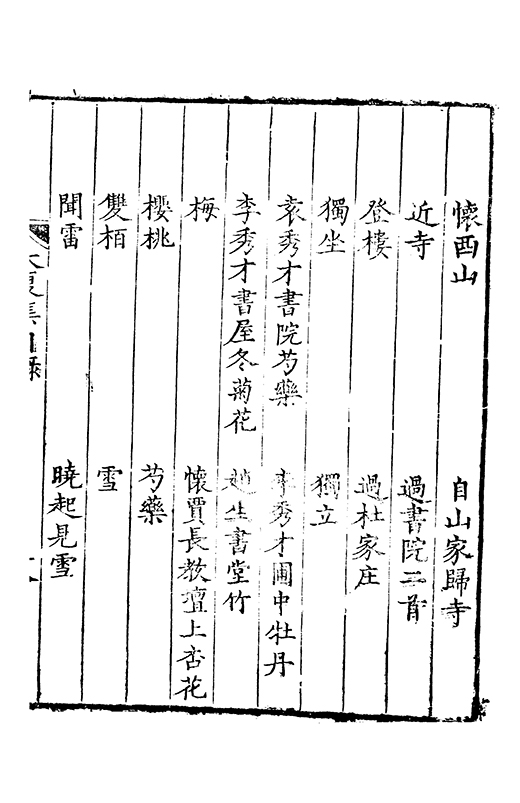 懷西山
自山家歸寺
近寺
過書院二首
登樓
過杜家庄
獨坐
獨立
袁秀才書院芍藥
李秀才圃中牡丹
李秀才書屋冬菊花
趙生書堂竹
梅
懷賈長教壇上杏花
櫻桃
芍藥
雙栢
雪
聞雷
曉起見雪
大復集目錄